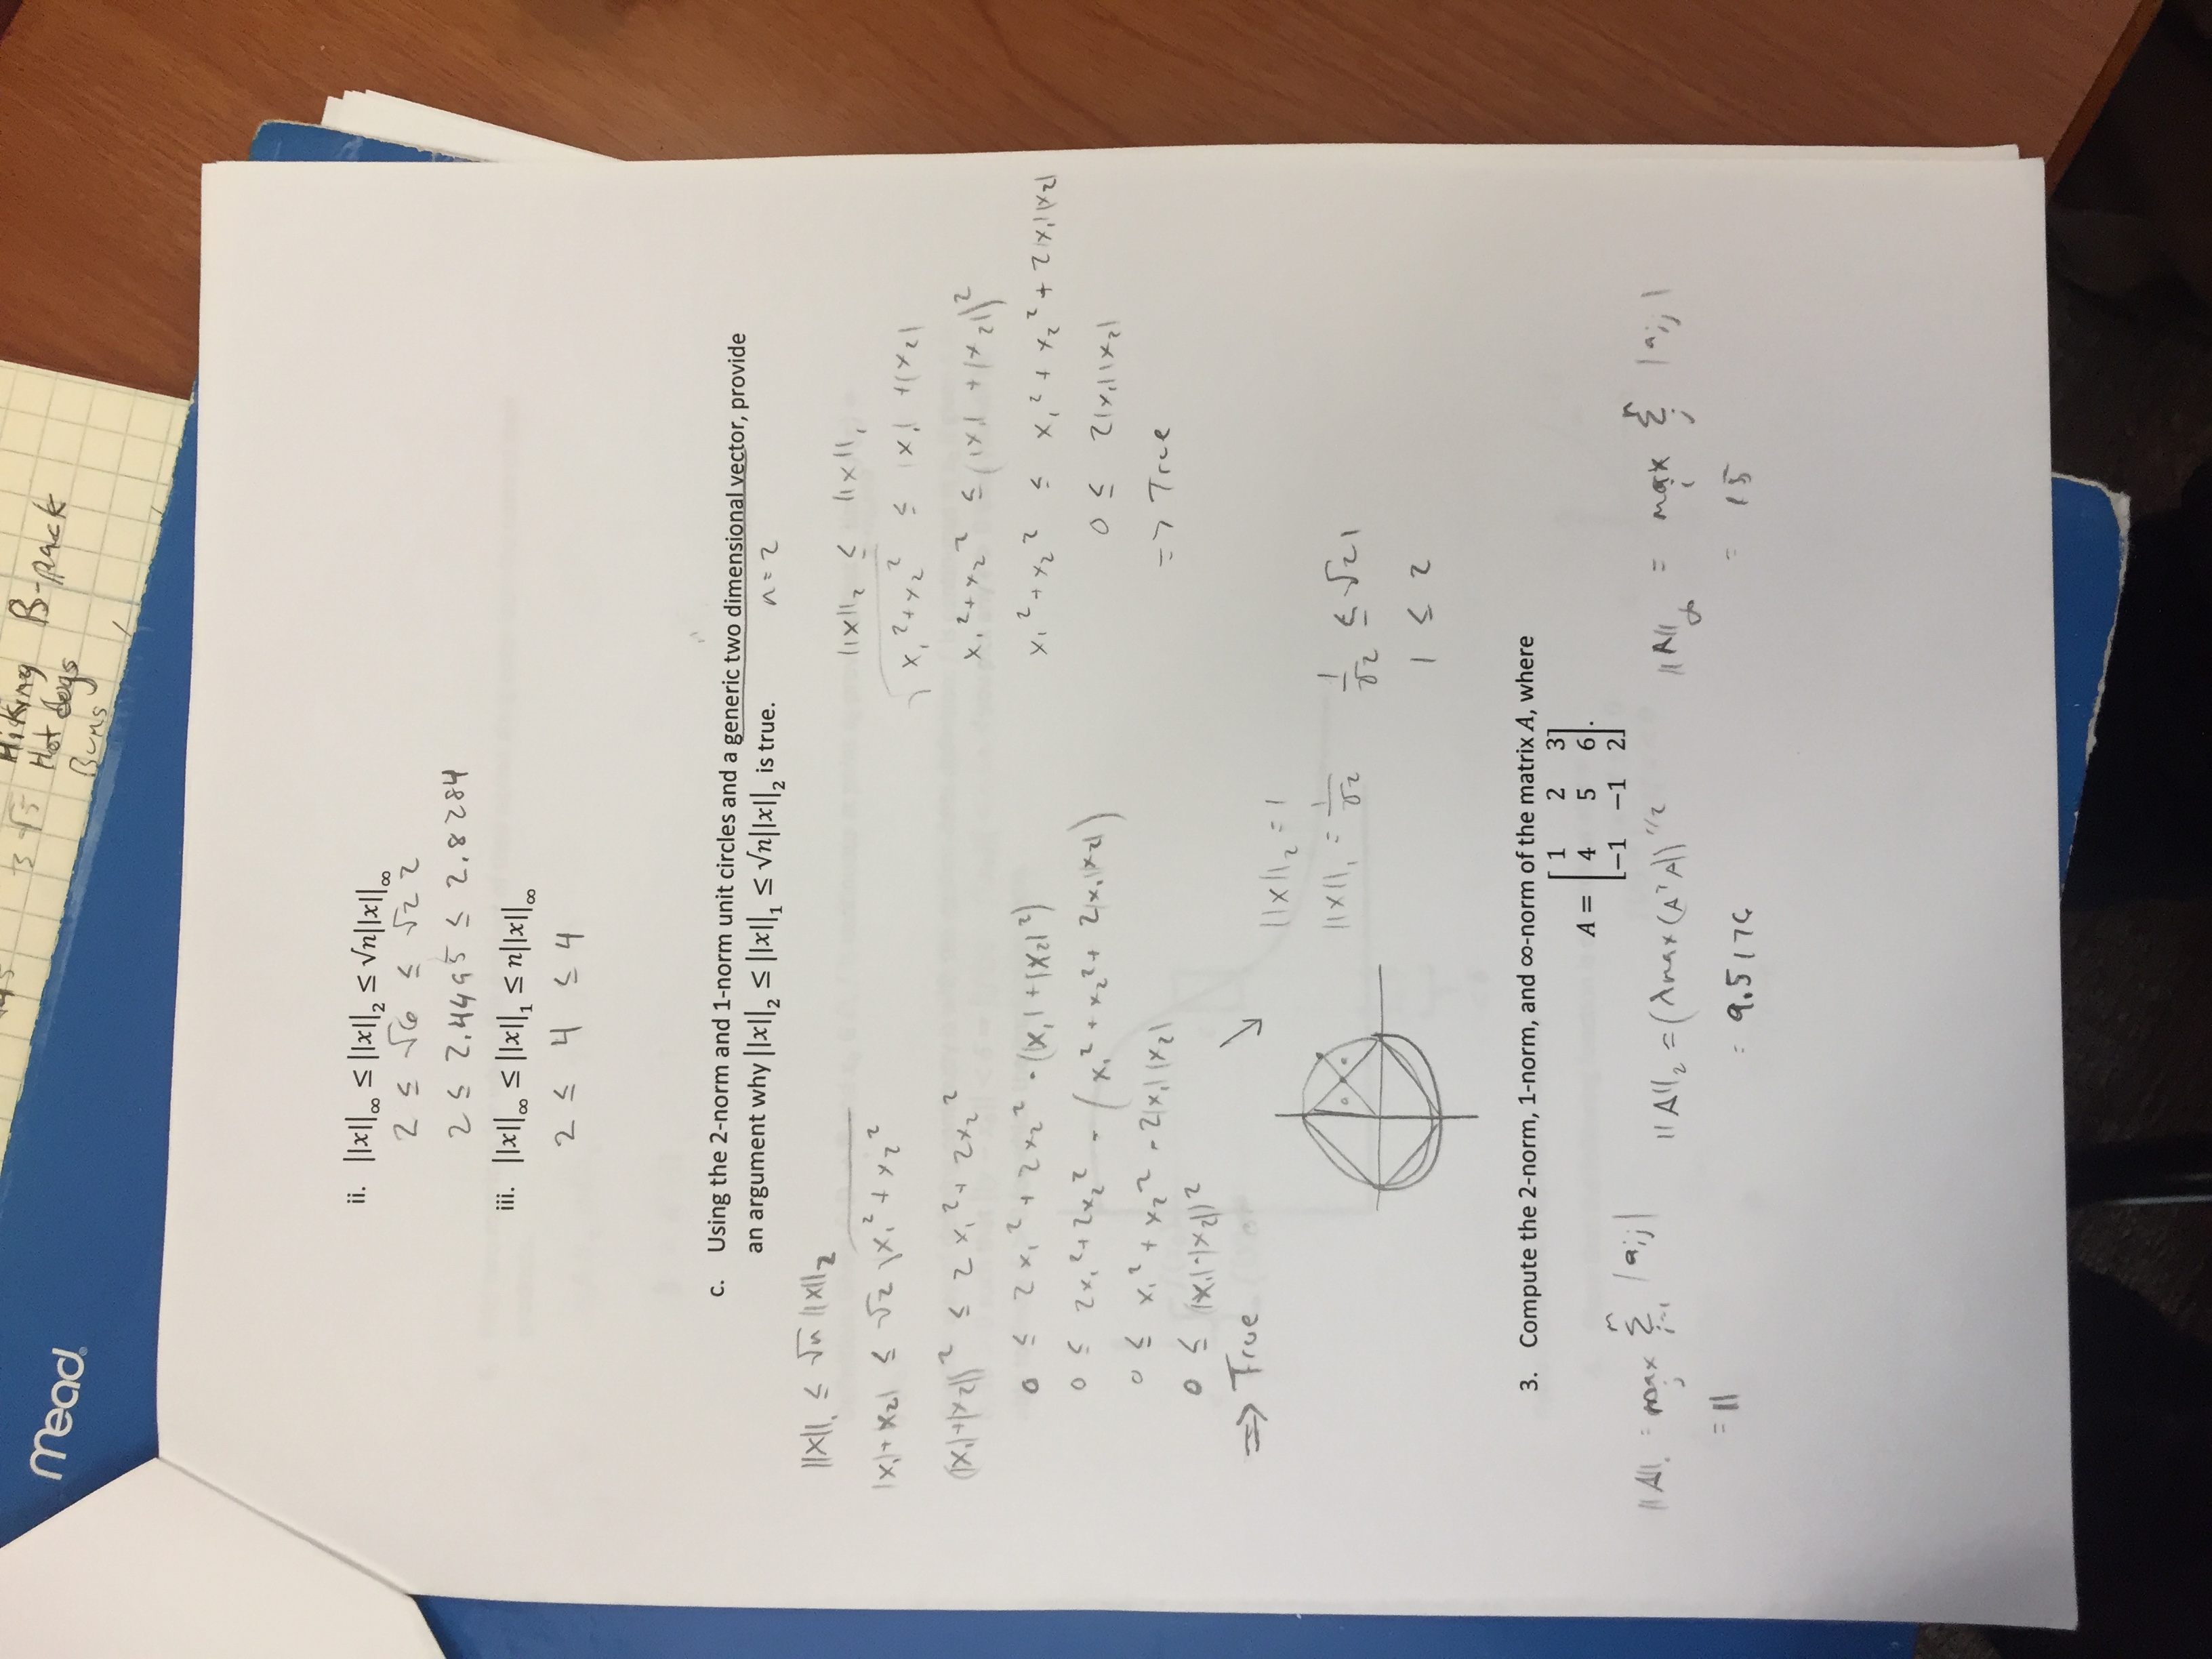 Mead
3 √5
Hiking B-pack
Hot dogs
Buns
ii. ||x||∞ ≤ ||x||₂ ≤ √n||x||∞
2 ≤ √6 ≤ √2 2
2 ≤ 2.4495 ≤ 2.8284
iii. ||x||∞ ≤ ||x||₁ ≤ n||x||∞
2 ≤ 4 ≤ 4
c. Using the 2-norm and 1-norm unit circles and a generic two dimensional vector, provide
an argument why ||x||₂ ≤ ||x||₁ ≤ √n||x||₂ is true.
n = 2
||x||₁ ≤ √n ||x||₂
|x₁|+|x₂| ≤ √2 √(x₁² + x₂²)
(|x₁|+|x₂|)² ≤ 2x₁² + 2x₂²
0 ≤ 2x₁² + 2x₂² - (|x₁|+|x₂|²)
0 ≤ 2x₁² + 2x₂² - (x₁² + x₂² + 2|x₁||x₂|)
0 ≤ x₁² + x₂² - 2|x₁||x₂|
0 ≤ (|x₁|-|x₂|)²
⇒ True
||x||₂ ≤ ||x||₁
√(x₁² + x₂²) ≤ |x₁| + |x₂|
x₁² + x₂² ≤ (|x₁| + |x₂|)²
x₁² + x₂² ≤ x₁² + x₂² + 2|x₁||x₂|
0 ≤ 2|x₁||x₂|
⇒ True
||x||₂ = 1
||x||₁ = 1/√2
1/√2 ≤ √2 1
1 ≤ 2
3. Compute the 2-norm, 1-norm, and ∞-norm of the matrix A, where
A = [1 2 3
4 5 6
−1 −1 2].
||A||₁ = max j Σ i=1 n |aij|
= 11
||A||₂ = (λmax(AᵀA))^1/2
= 9.5176
||A||∞ = max i Σ j n |aij|
= 15